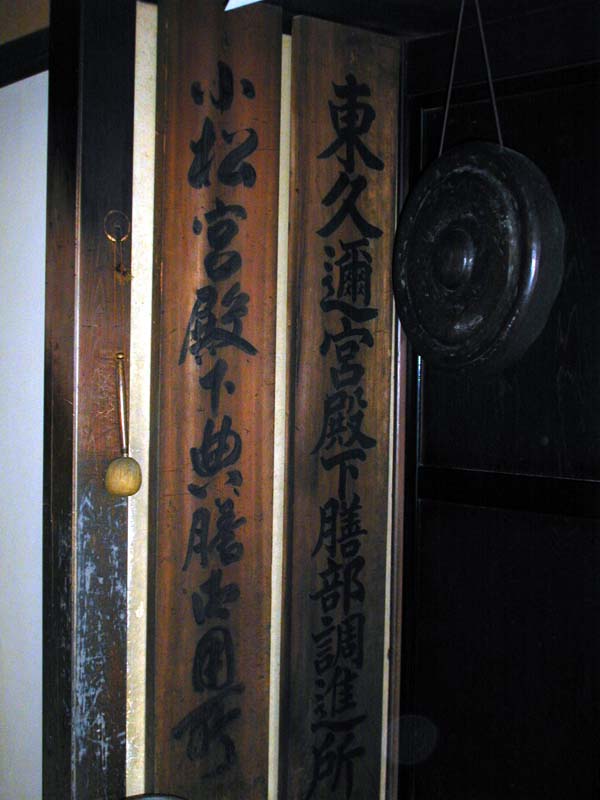 東久邇宮殿下膳部調進所
小松宮殿下典膳御用所